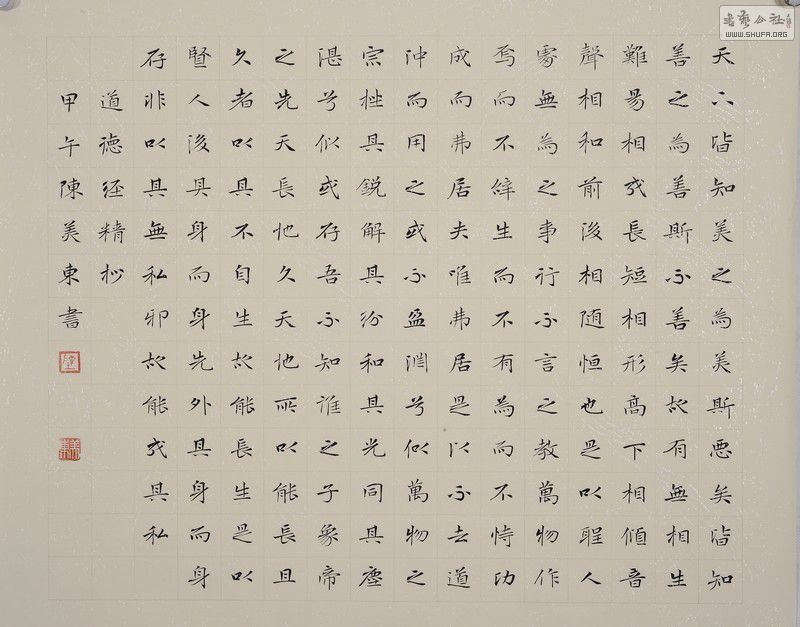 天下皆知美之為美斯悪矣皆知
善之為善斯不善矣故有無相生
難易相成長短相形高下相傾音
聲相和前後相随恒也是以聖人
處無為之事行不言之教萬物作
焉而不辭生而不有為而不恃功
成而弗居夫唯弗居是以不去道
沖而用之或不盈淵兮似萬物之
宗挫其鋭解其紛和其光同其塵
湛兮似或存吾不知誰之子象帝
之先天長地久天地所以能長且
久者以其不自生故能長生是以
賢人後其身而身先外其身而身
存非以其無私邪故能成其私
道德經精抄
甲午陳美東書
書藝公社
WWW.SHUFA.ORG